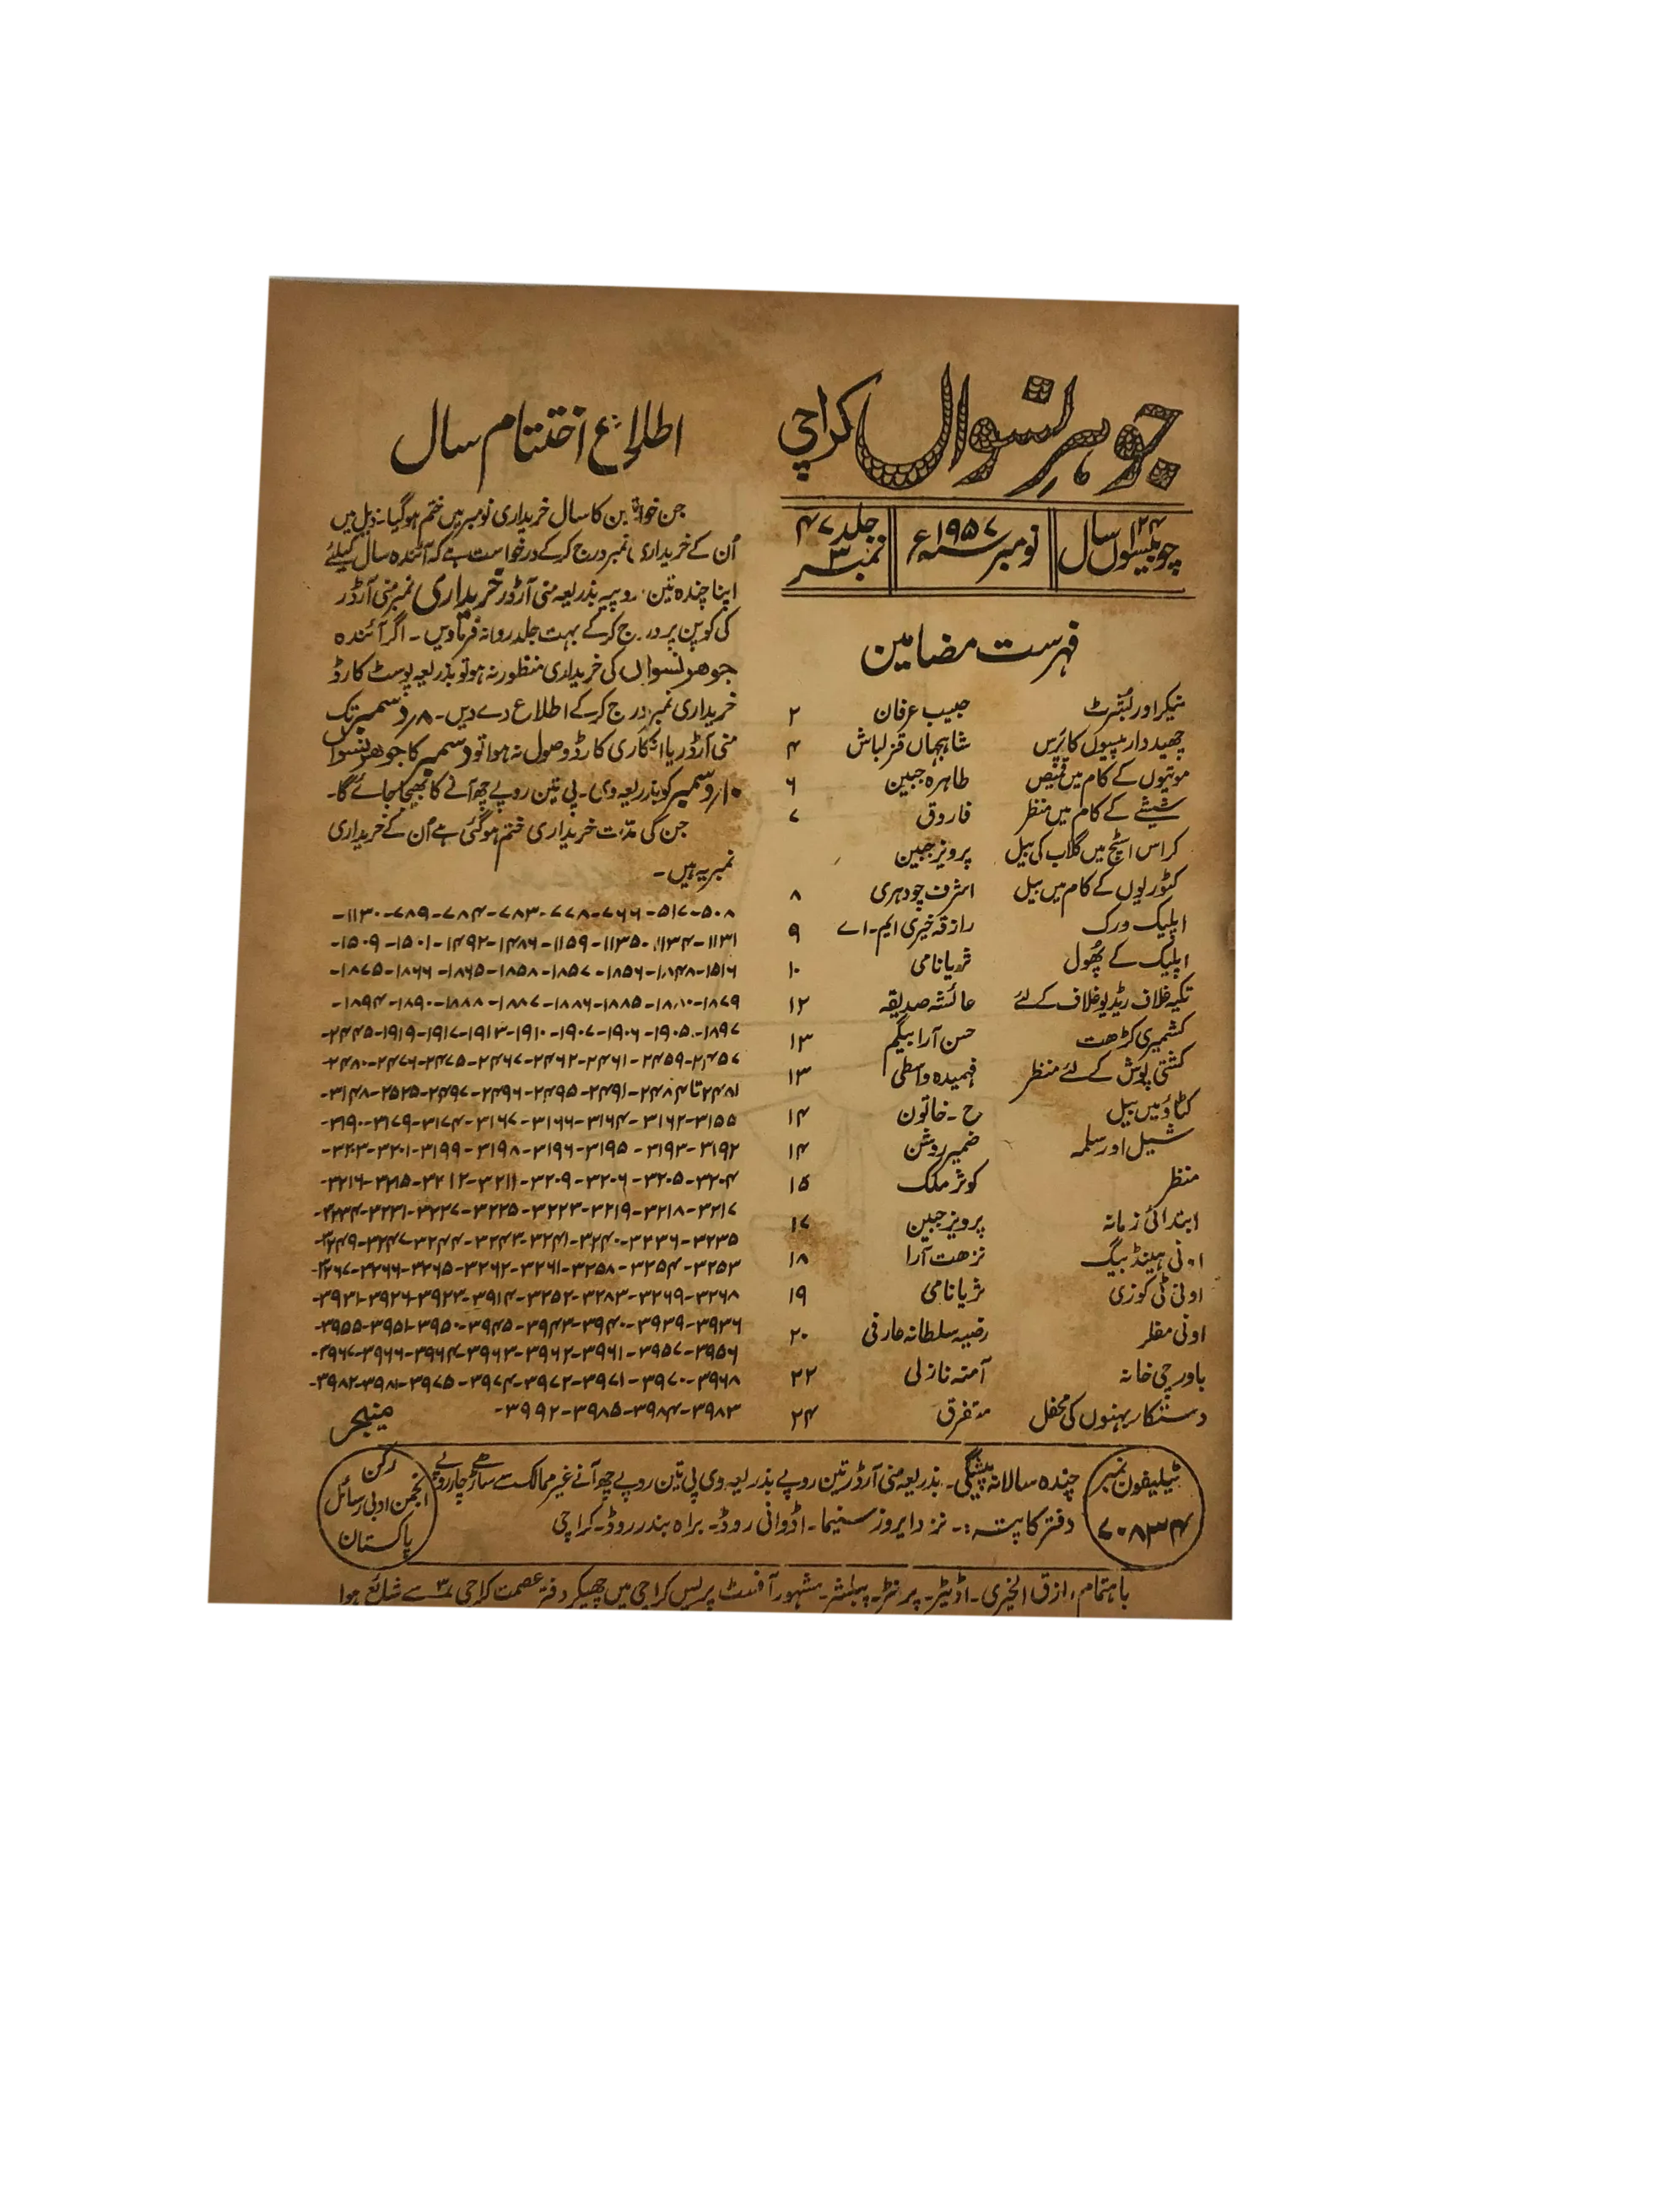 جوہرِ نسواں کراچی
۲۴ چوبیسواں سال
نومبر ۱۹۵۷ء
جلد ۴۷
نمبر ۳
فہرست مضامین
نیکر اور بُشرٹ حبیب عرفان ۲
چھید دار سیپوں کا پَرس شاہجہاں قزلباش ۴
موتیوں کے کام میں قمیص طاہرہ جبین ۶
شیشے کے کام میں منظر فاروق ۷
کراس اسٹچ میں گلاب کی بیل پرویز جبین
کٹوریوں کے کام میں بیل اشرف چودہری ۸
اپلیک ورک رازقہ خیری ایم-اے ۹
اپلیک کے پھُول ثریا نامی ۱۰
تکیہ غلاف ریڈیو غلاف کے لئے عائشہ صدیقہ ۱۲
کشمیری کڑھت حسن آرا بیگم ۱۳
کشتی پوش کے لئے منظر فہمیدہ واسطی ۱۳
کٹاؤ میں بیل ح-خاتون ۱۴
شیل اور سلمہ ضمیر روشن ۱۴
منظر کوثر ملک ۱۵
ابتدائی زمانہ پرویز جبین ۱۷
اونی ہینڈ بیگ نزھت آرا ۱۸
اونی ٹی کوزی ثریا نامی ۱۹
اونی مفلر رضیہ سلطانہ عارفی ۲۰
باورچی خانہ آمنہ نازلی ۲۲
دستکار بہنوں کی محفل متفرق ۲۴
اطلاع اختتام سال
جن خواتین کا سال خریداری نومبر میں ختم ہوگیا۔ ذیل میں
اُن کے خریداری نمبر درج کرکے درخواست ہے کہ آئندہ سال کیلئے
اپنا چندہ تین روپیہ بذریعہ منی آرڈر خریداری نمبر منی آرڈر
کی کوپن پر درج کرکے بہت جلد روانہ فرمادیں۔ اگر آئندہ
جوھر نسواں کی خریداری منظور نہ ہو تو بذریعہ پوسٹ کارڈ
خریداری نمبر درج کرکے اطلاع دے دیں۔ ۸ر دسمبر تک
منی آرڈر یا انکاری کارڈ وصول نہ ہوا تو دسمبر کا جوھر نسواں
۱۰ر دسمبر کو بذریعہ وی۔ پی تین روپے چھ آنے کا بھیجا جائے گا۔
جن کی مدّت خریداری ختم ہوگئی ہے اُن کے خریداری
نمبر یہ ہیں۔
۵۰۸-۵۱۷-۷۶۶-۷۷۸-۷۸۳-۷۸۴-۷۸۹-۱۱۳۰-
۱۱۳۱-۱۱۳۴-۱۱۳۵-۱۱۵۹-۱۴۸۶-۱۴۹۲-۱۵۰۱-۱۵۰۹-
۱۵۱۶-۱۸۴۸-۱۸۵۶-۱۸۵۷-۱۸۵۸-۱۸۶۵-۱۸۶۶-۱۸۷۵-
۱۸۷۹-۱۸۸۰-۱۸۸۵-۱۸۸۶-۱۸۸۷-۱۸۸۸-۱۸۹۰-۱۸۹۴-
۱۸۹۷-۱۹۰۵-۱۹۰۶-۱۹۰۷-۱۹۱۰-۱۹۱۳-۱۹۱۷-۱۹۱۹-۲۴۴۵-
۲۴۵۷-۲۴۵۹-۲۴۶۱-۲۴۶۲-۲۴۶۷-۲۴۷۵-۲۴۷۶-۲۴۸۰-
۲۴۸۱ تا ۲۴۸۴-۲۴۹۱-۲۴۹۵-۲۴۹۶-۲۴۹۷-۲۵۲۵-۳۱۴۸-
۳۱۵۵-۳۱۶۲-۳۱۶۴-۳۱۶۶-۳۱۶۷-۳۱۷۴-۳۱۷۹-۳۱۹۰-
۳۱۹۲-۳۱۹۳-۳۱۹۵-۳۱۹۶-۳۱۹۸-۳۱۹۹-۳۲۰۱-۳۲۰۳-
۳۲۰۴-۳۲۰۵-۳۲۰۶-۳۲۰۹-۳۲۱۱-۳۲۱۲-۳۲۱۵-۳۲۱۶-
۳۲۱۷-۳۲۱۸-۳۲۱۹-۳۲۲۳-۳۲۲۵-۳۲۲۷-۳۲۳۱-۳۲۳۴-
۳۲۳۵-۳۲۳۶-۳۲۴۰-۳۲۴۱-۳۲۴۳-۳۲۴۴-۳۲۴۷-۳۲۴۹-
۳۲۵۳-۳۲۵۴-۳۲۵۸-۳۲۶۱-۳۲۶۲-۳۲۶۵-۳۲۶۶-۳۲۶۷-
۳۲۶۸-۳۲۶۹-۳۲۸۳-۳۲۵۲-۳۹۱۴-۳۹۲۳-۳۹۲۶-۳۹۳۱-
۳۹۳۶-۳۹۳۹-۳۹۴۰-۳۹۴۳-۳۹۴۵-۳۹۵۰-۳۹۵۱-۳۹۵۵-
۳۹۵۶-۳۹۵۷-۳۹۶۱-۳۹۶۲-۳۹۶۳-۳۹۶۴-۳۹۶۶-۳۹۶۷-
۳۹۶۸-۳۹۷۰-۳۹۷۱-۳۹۷۲-۳۹۷۴-۳۹۷۵-۳۹۸۱-۳۹۸۲-
۳۹۸۳-۳۹۸۴-۳۹۸۵-۳۹۹۲- منیجر
ٹیلیفون نمبر
۷۰۸۳۴
چندہ سالانہ پیشگی۔ بذریعہ منی آرڈر تین روپے بذریعہ وی پی تین روپے چھ آنے غیر ممالک سے ساڑھے چار روپے
دفتر کا پتہ:۔ نزد ایروز سنیما۔ اڈوانی روڈ۔ براہ بندر روڈ۔ کراچی
رکن
انجمن ادبی رسائل
پاکستان
باہتمام رازق الخیری۔ اڈیٹر۔ پرنٹر۔ پبلشر۔ مشہور آفسٹ پریس کراچی میں چھپکر دفتر عصمت کراچی ۳ سے شائع ہوا